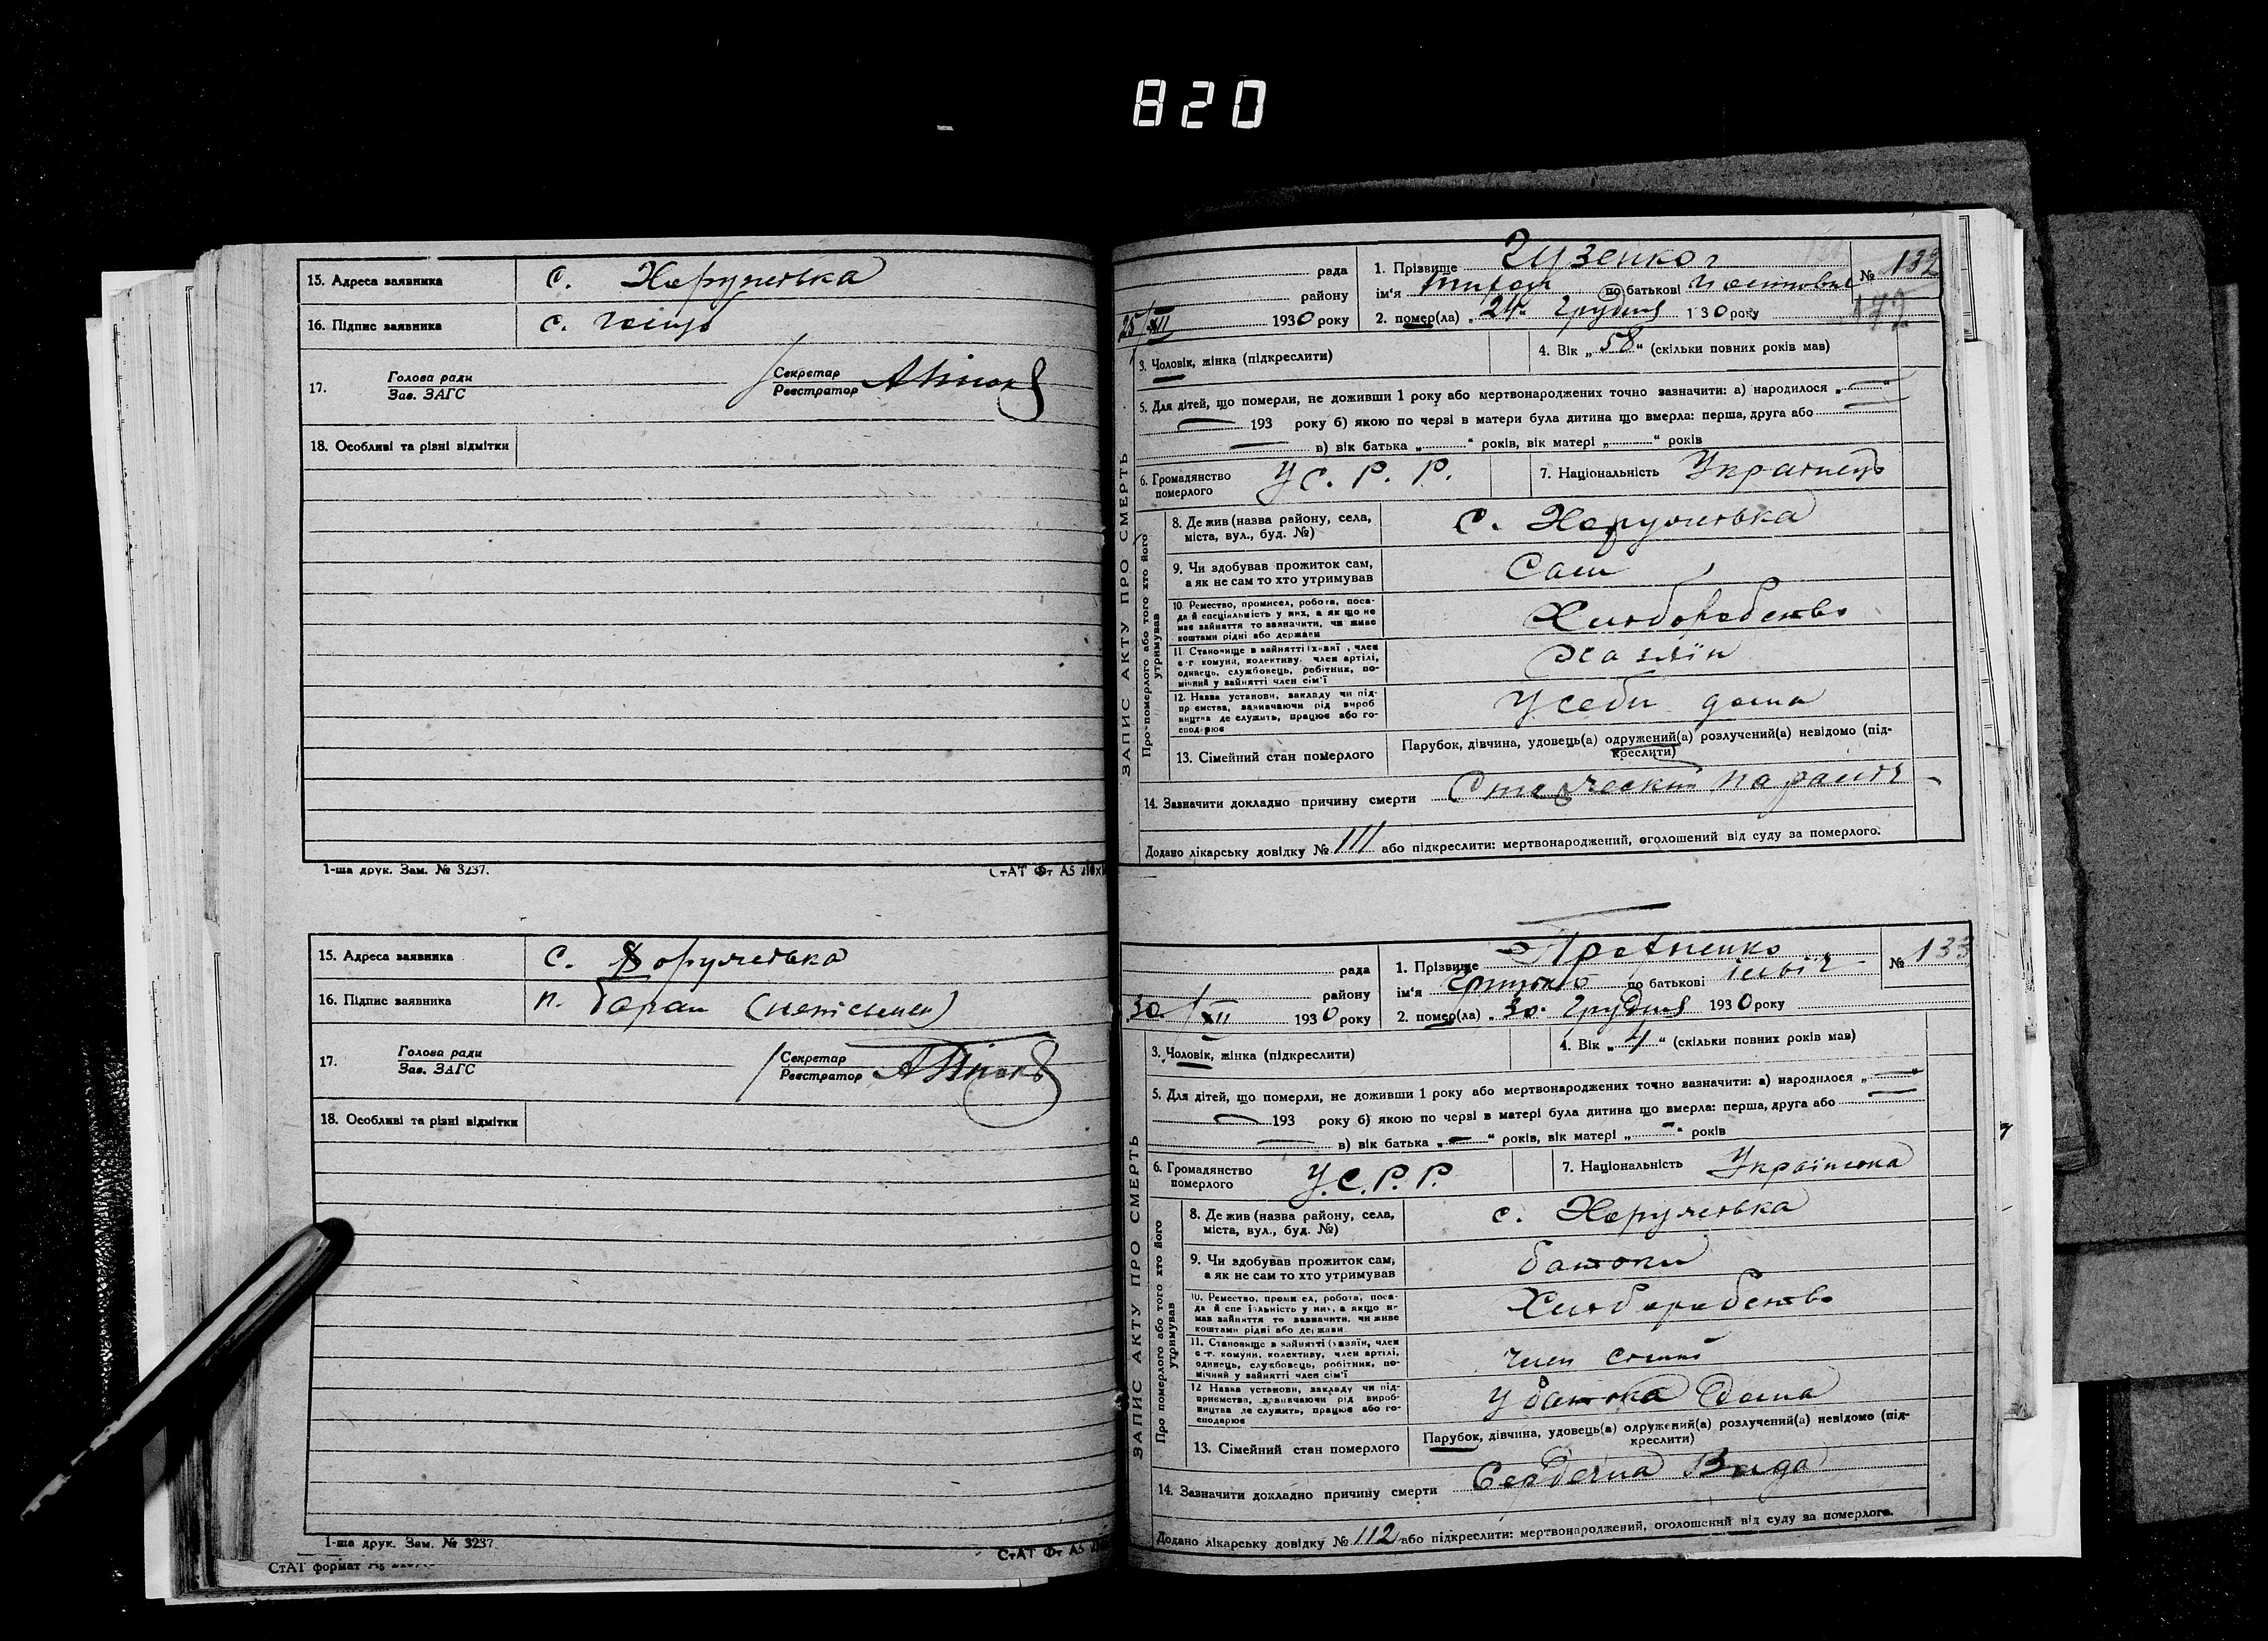 820
15. Адреса заявника
16. Підпис заявника
с.
17. Голова ради
Зав. ЗАГС
Секретар
Реєстратор
18. Особливі та різні відмітки
1-ша друк. Зам. № 3237.
СтАТ Фт А5
15. Адреса заявника
с.
16. Підпис заявника
17. Голова ради
Зав. ЗАГС
Секретар
Реєстратор
18. Особливі та різні відмітки
1-ша друк. Зам. № 3237
СтАТ Фт А5
СтАТ формат А5
ЗАПИС АКТУ ПРО СМЕРТЬ
Про померлого або того хто його утримував
рада
району
25/XII 1930 року
1. Прізвище
№ 132
ім'я по батькові
2. помер(ла) „24“ грудня 1930 року
3. Чоловік, жінка (підкреслити)
4. Вік „58“ (скільки повних років мав)
5. Для дітей, що померли, не доживши 1 року або мертвонароджених точно зазначити: а) народилося „ “
193 року б) якою по черзі в матери була дитина що вмерла: перша, друга або
в) вік батька „ “ років, вік матері „ “ років
6. Громадянство
померлого
У С. Р. Р.
7. Національність Українець
8. Де жив (назва району, села,
міста, вул., буд. №)
с.
9. Чи здобував прожиток сам,
а як не сам то хто утримував
Сам
10. Ремество, промисел, робота, поса-
да й спеціяльність у них, а як що не
має зайняття то зазначити, чи живе
коштами рідні або держави
Хліборобство
11. Становище в зайнятті (хазяї , член
с-г комуни, колективу, член артілі,
одинець, службовець, робітник, по-
мічний у зайнятті член сім'ї
Хазяїн
12. Назва установи, закладу чи під-
приємства, зазначаючи рід вироб
ництва де служить, працює або го-
сподарює
У себе дома
13. Сімейний стан померлого
Парубок, дівчина, удовець(а) одружений(а) розлучений(а) невідомо (під-
креслити)
14. Зазначити докладно причину смерти
Додано лікарську довідку № 111 або підкреслити: мертвонароджений, оголошений від суду за померлого.
ЗАПИС АКТУ ПРО СМЕРТЬ
Про померлого або того хто його утримував
рада
району
30/XII 1930 року
1. Прізвище
№ 133
ім'я по батькові
2. помер(ла) „30“ грудня 1930 року
3. Чоловік, жінка (підкреслити)
4. Вік „4“ (скільки повних років мав)
5. Для дітей, що померли, не доживши 1 року або мертвонароджених точно зазначити: а) народилося „ “
193 року б) якою по черзі в матері була дитина що вмерла: перша, друга або
в) вік батька „ “ років, вік матері „ “ років
6. Громадянство
померлого
У.С.Р.Р.
7. Національність Українська
8. Де жив (назва району, села,
міста, вул., буд. №)
с.
9. Чи здобував прожиток сам,
а як не сам то хто утримував
батьки
10. Ремество, промисел, робота, поса-
да й спеціяльність у них, а якщо не
мав зайняття то зазначити, чи живе
коштами рідні або держави
Хліборобство
11. Становище в зайнятті (хазяїн, член
с-г. комуни, колективу, член артілі,
одинець, службовець, робітник, по-
мічний у зайнятті член сім'ї
член сім'ї
12 Назва установи, закладу чи під-
приємства, зазначаючи рід вироб-
ництва де служить, працює або го-
сподарює
У батька дома
13. Сімейний стан померлого
Парубок, дівчина, удовець(а) одружений(а) розлучений(а) невідомо (під-
креслити)
14. Зазначити докладно причину смерти Сердечна Вада
Додано лікарську довідку № 112 або підкреслити: мертвонароджений, оголошений від суду за померлого.